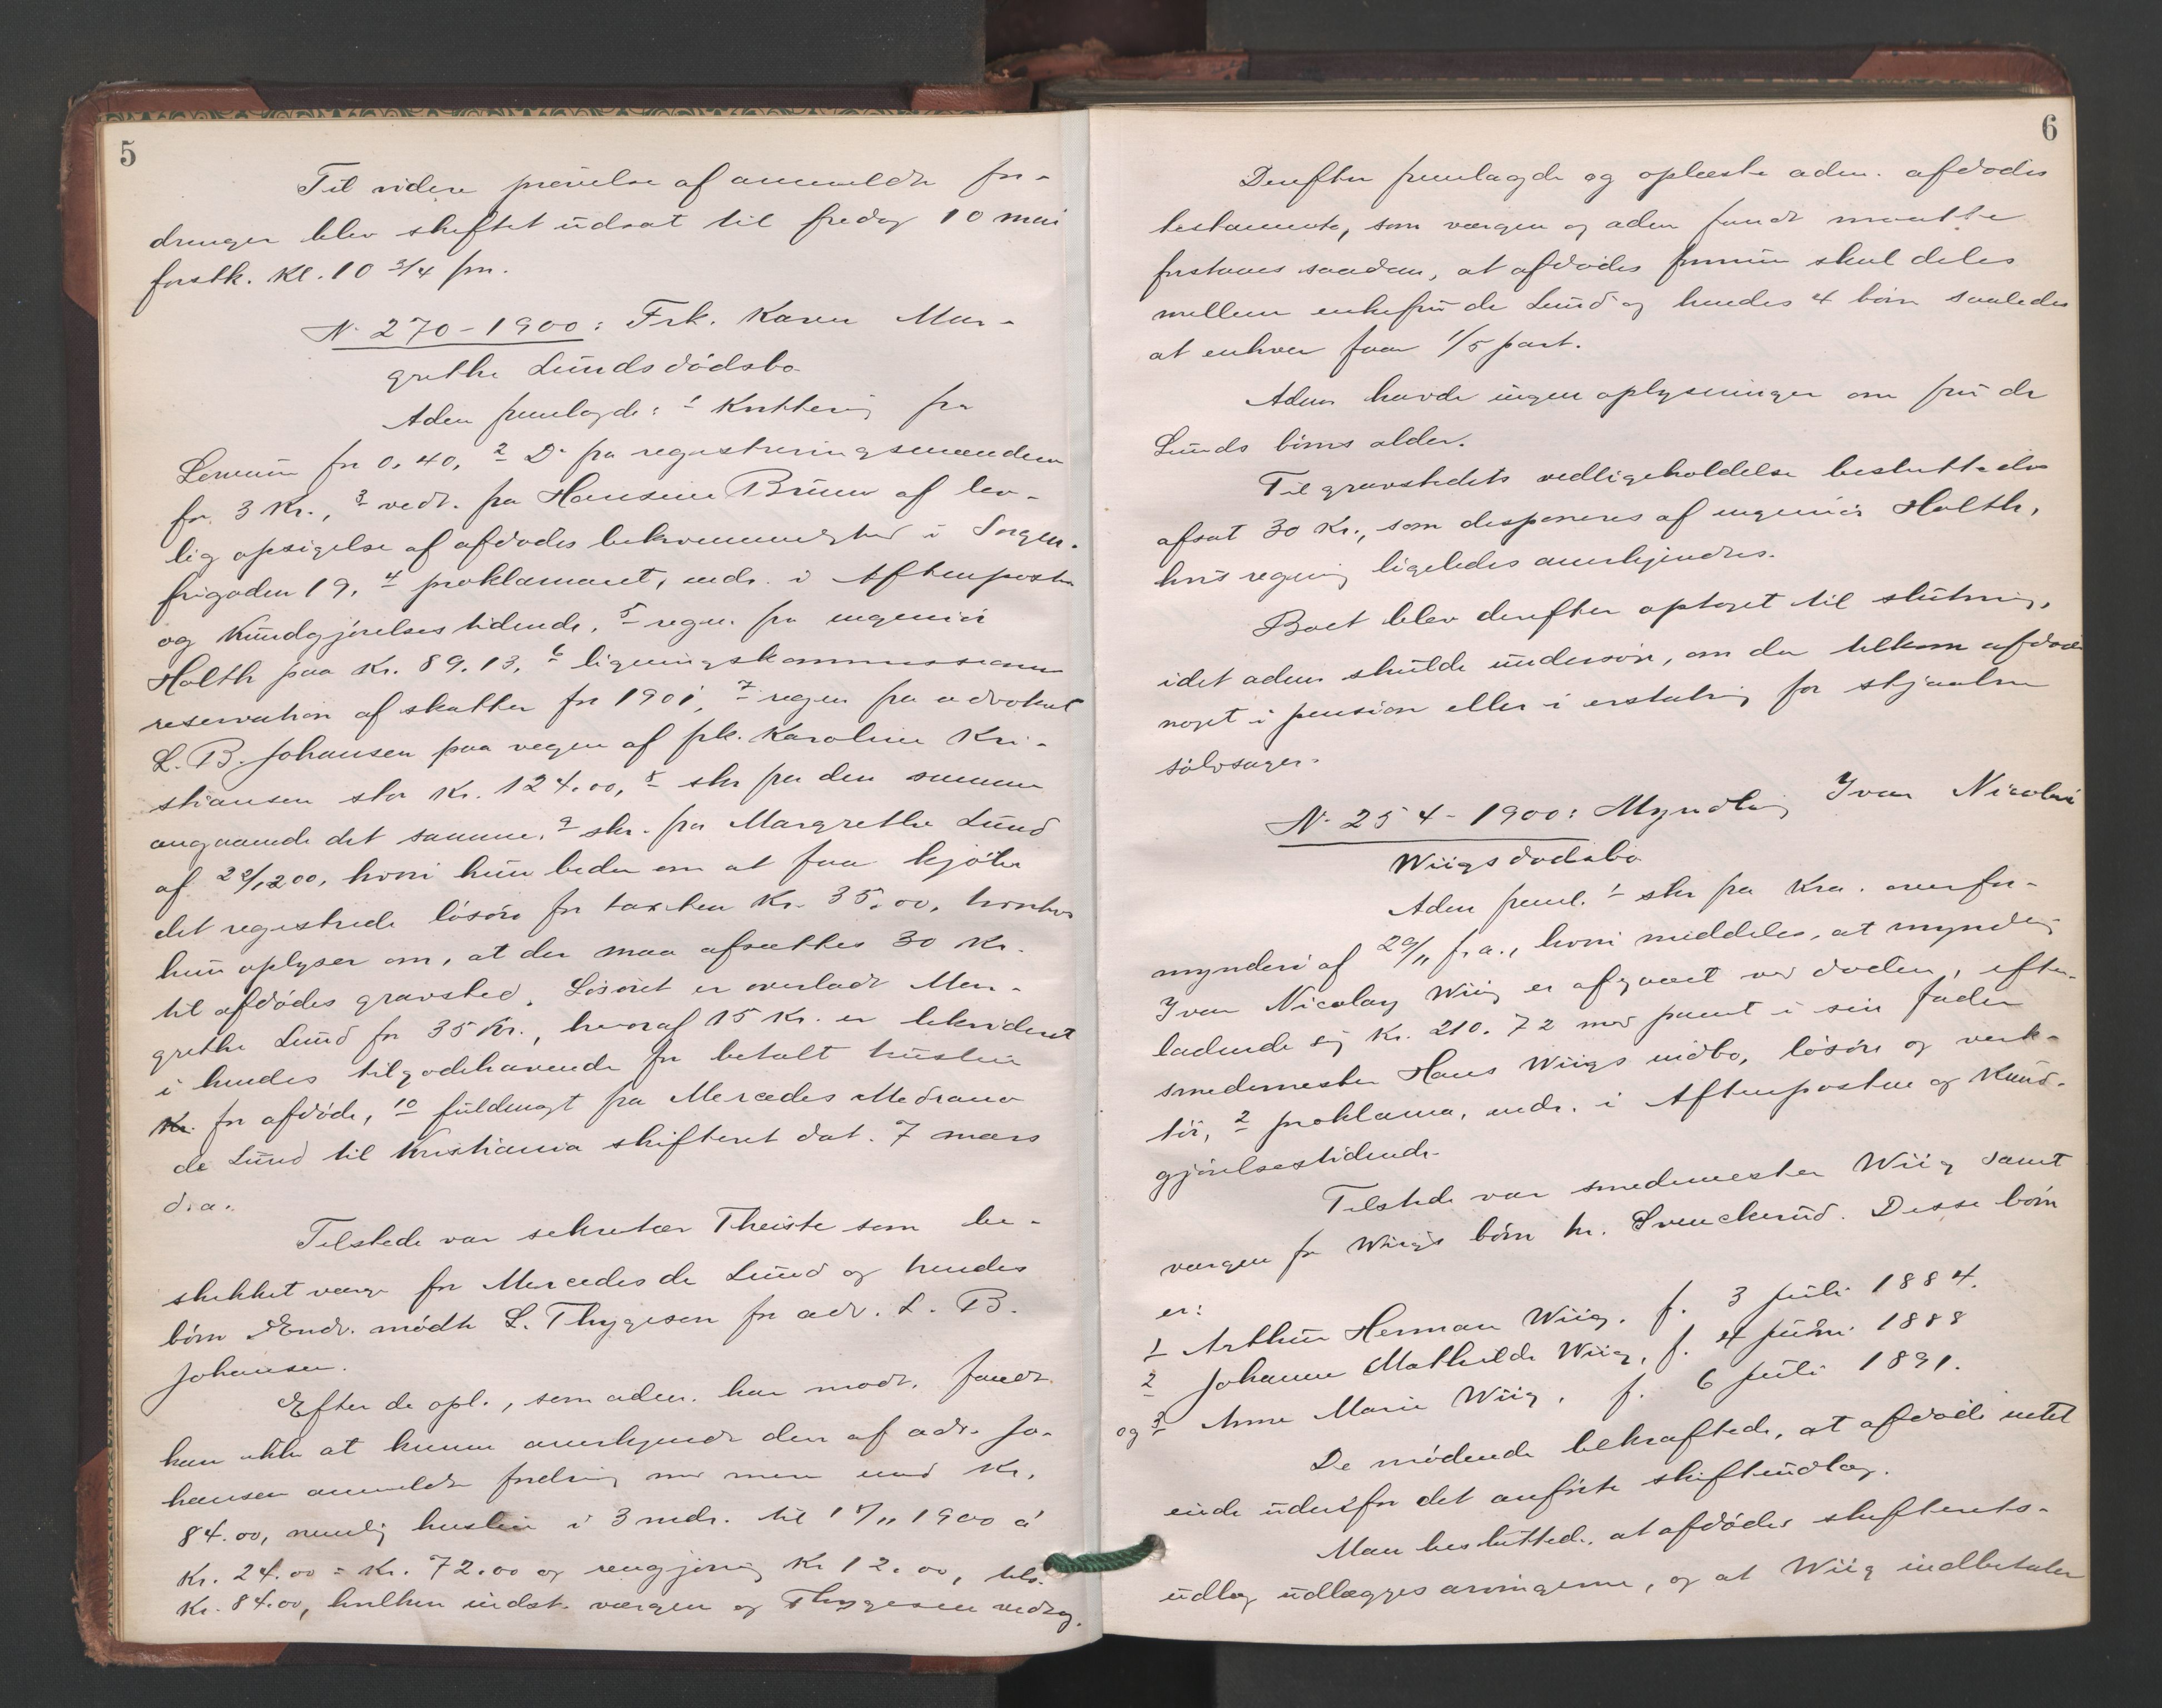 5
Til videre prøvelse af anmeldte for-
dringer blev skiftet udsat til fredag 10 mai
førstk. Kl. 10 3/4 fm.
N. 270 - 1900: Frk. Karen Mar-
grethe Lunds dødsbo
Adem fremlagde: 1 Kvittering fra
for 0.40, 2 Do fra registreringsmændene
for 3 Kr., 3 vedt. fra Hansine Bruun af lov-
lig opsigelse af afdødes bekvemmelighed i Sorgen-
frigaden 19, 4 proklamaet, indr. i Aftenposten
og Kundgjørelsestidende, 5 regn. fra ingeniør
Holth paa Kr. 89.13, 6 ligningskommissionens
reservation af skatter for 1901, 7 regn fra advokat
L. B. Johansen paa vegne af frk. Karoline Kri-
stiansen stor Kr. 124.00, 8 skr fra den samme
angaaende det samme, 9 skr. fra Margrethe Lund
af 22/1200, hvori hun beder om at faa kjøbe
det registrerede løsøre for taxten Kr. 35.00, hvorhos
hun oplyser om, at der maa afsættes 30 Kr.
til afdødes gravsted. Løsøret er overladt Mar-
grethe Lund for 35 Kr., hvoraf 15 Kr. er likvideret
i hendes tilgodehavende for betalt husleie
Kr. for afdøde, 10 fuldmagt fra Mercedes Medrano
de Lund til Kristiania skifteret dat. 7 mars
d.a.
Tilstede var sekretær Theiste som be-
skikket verge for Mercedes de Lund og hendes
børn Endv. mødte L. Thygesen for adv. L. B.
Johansen.
Efter de opl., som adem. har modt. fandt
han ikke at kunne anerkjende den af adv. Jo-
hansen anmeldte fordring med mere end Kr.
84.00, nemlig husleie i 3 mdr. til 17/11 1900 á
Kr. 24.00 = Kr. 72.00 og rengjøring Kr 12.00, tils.
Kr. 84.00, hvilken indst. værgen og Thygesen vedtog.
6
Derefter fremlagde og oplæste adm. afdødes
testamente, som værgen og adem fandt maatte
forstaaes saadan, at afdødes formue skal deles
mellem enkefru de Lund og hendes 4 børn saaledes
at enhver faar 1/5 part.
Adem havde ingen oplysninger om fru de
Lunds børns alder.
Til gravstedets vedligeholdelse besluttedes
afsat 30 Kr., som disponeres af ingeniør Holth,
hvis regning ligeledes anerkjendtes.
Boet blev derefter optaget til slutning,
idet adem skulde undersøge, om der tilkom afdøde
noget i pension eller i erstatning for stjaalne
sølvsager.
N. 254 - 1900: Myndling Ivar Nicolai
Wiigs dødsbo
Adem freml. 1 skr fra Kra. overfor-
mynderi af 29/11 f.a., hvori meddeles, at myndling
Ivar Nicolay Wiig er afgaaet ved døden, efter-
ladende sig Kr. 210.72 med pant i sin fader
smedemester Hans Wiigs indbo, løsøre og verk-
tøi, 2 proklama, indr. i Aftenposten og Kund-
gjørelsestidende.
Tilstede var smedemester Wiig samt
værgen for Wiigs børn hr. Svenckerud. Disse børn
er:
1 Arthur Herman Wiig, f. 3 juli 1884.
2 Johanne Mathilde Wiig, f. 4 juni 1888
og 3 Anne Marie Wiig, f. 6 juli 1891.
De mødende bekræftede, at afdøde intet
eiede udenfor det anførte skifteudlæg.
Man besluttede, at afdødes skifterets-
udlæg udlægges arvingerne, og at Wiig indbetaler